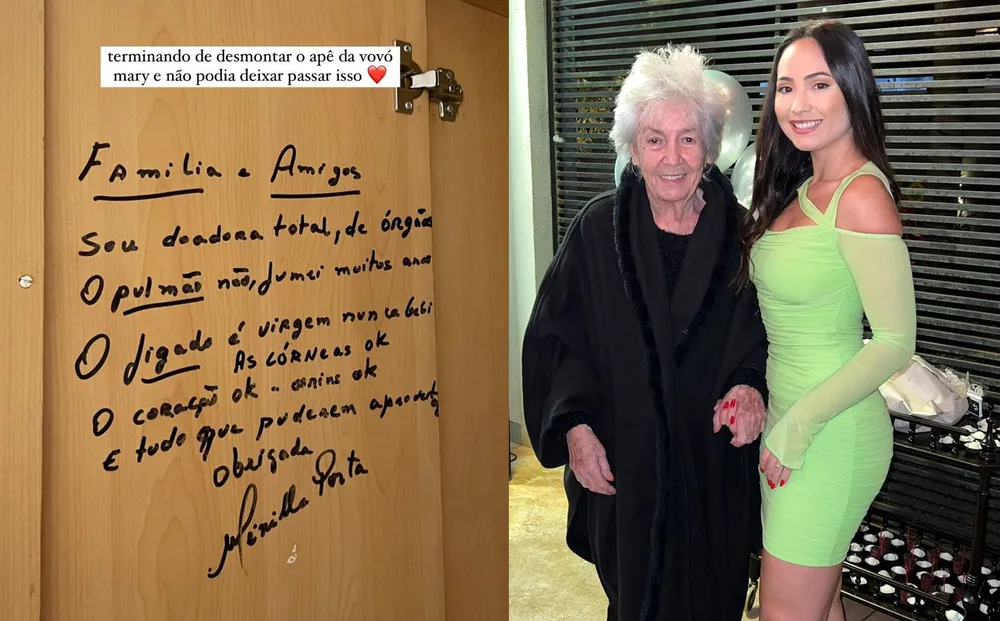 terminando de desmontar o apê da vovó
mary e não podia deixar passar isso ❤️
Familia e Amigos
Sou doadora total, de órgãos
O pulmão não, fumei muitos anos
O figado é virgem nunca bebi
As córneas ok
O coração ok -  ok
E tudo que puderem
Obrigada